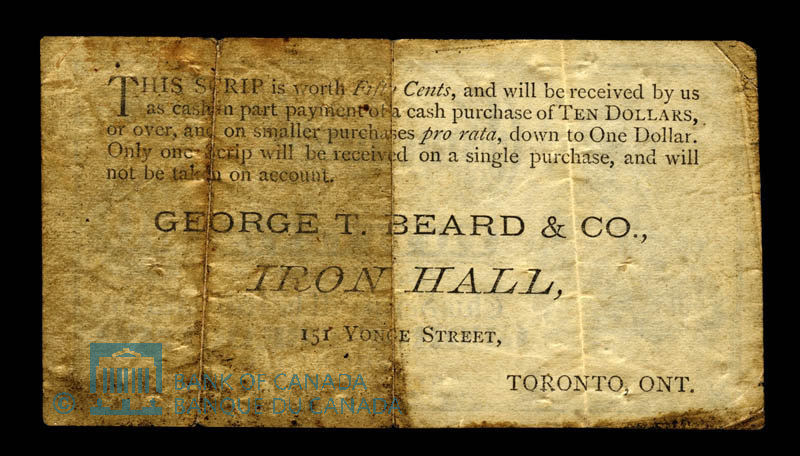 THIS SCRIP is worth Fifty Cents, and will be received by us
as cash in part payment of a cash purchase of TEN DOLLARS,
or over, and on smaller purchases pro rata, down to One Dollar.
Only one Scrip will be received on a single purchase, and will
not be taken on account.
GEORGE T. BEARD & CO.,
IRON HALL,
151 YONGE STREET,
TORONTO, ONT.
© BANK OF CANADA
BANQUE DU CANADA